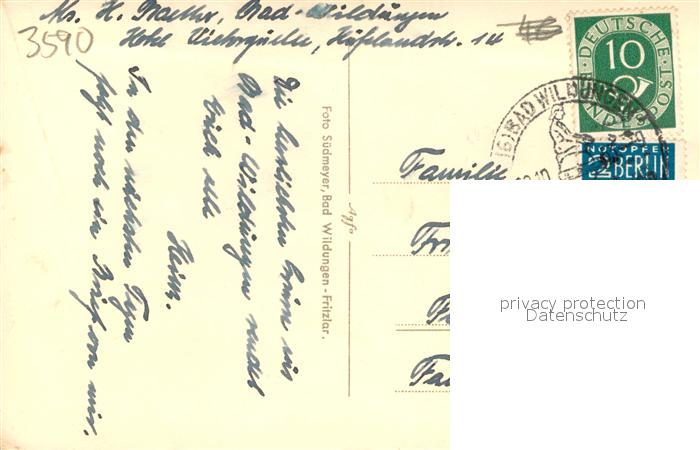 Abs. H. Baecker, Bad-Wildungen
Hotel Victorquelle, Hufelandstr. 14
3590
Die herzlichsten Grüsse aus
Bad-Wildungen sendet
Euch alle
Heinz.
In den nächsten Tagen
folgt noch ein Brief von mir.
Foto Südmeyer, Bad Wildungen - Fritzlar.
Agfa
DEUTSCHE
10
BUNDESPOST
BAD WILDUNGEN
NOTOPFER
2 BERLIN
Familie
privacy protection
Datenschutz